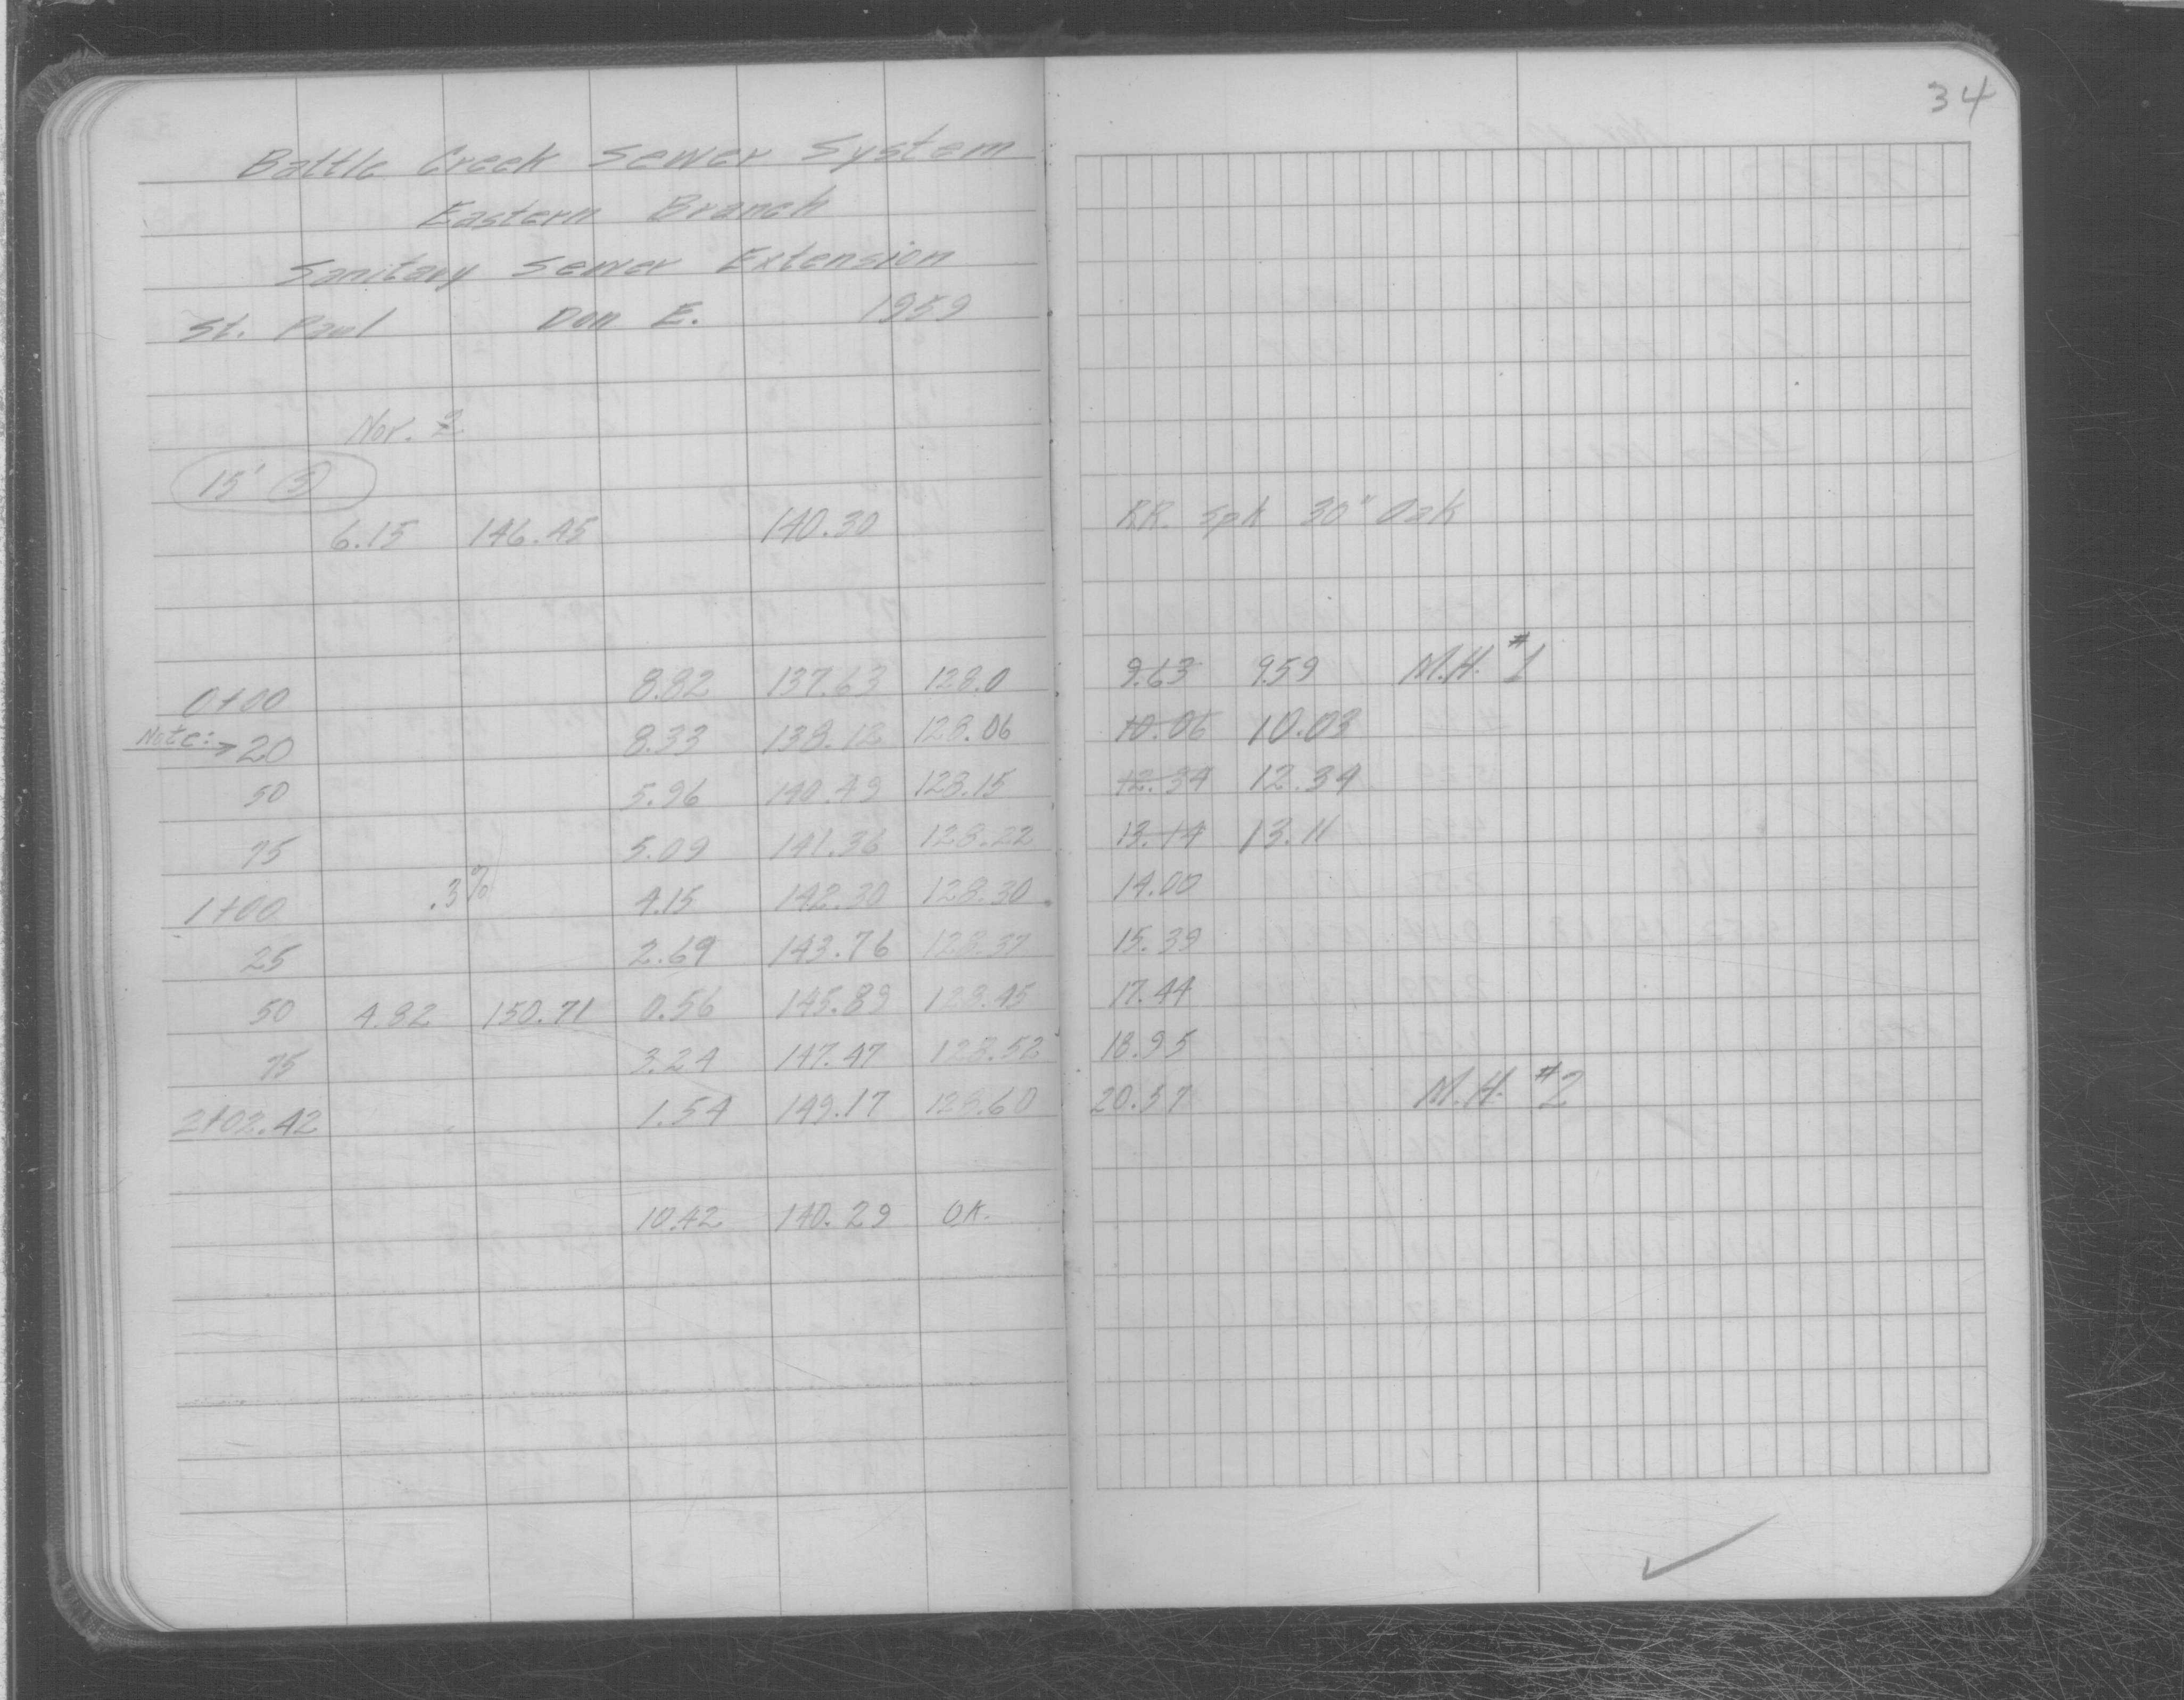 34
Battle Creek Sewer System
Eastern Branch
Sanitary Sewer Extension
St. Paul Don E. 1959
Nov. 2
15' S
6.15 146.45 140.30 RR. Spk 30" Oak
0+00 8.82 137.63 128.0 9.63 9.59 M.H. #1
Note: → 20 8.33 138.12 128.06 10.06 10.03
50 5.96 140.49 128.15 12.34 12.34
75 5.09 141.36 128.22 13.14 13.11
1+00 .3% 4.15 142.30 128.30 14.00
25 2.69 143.76 128.37 15.39
50 4.82 150.71 0.56 145.89 128.45 17.44
75 3.24 147.47 128.52 18.95
2+02.42 1.54 149.17 128.60 20.57 M.H. #2
10.42 140.29 OK.